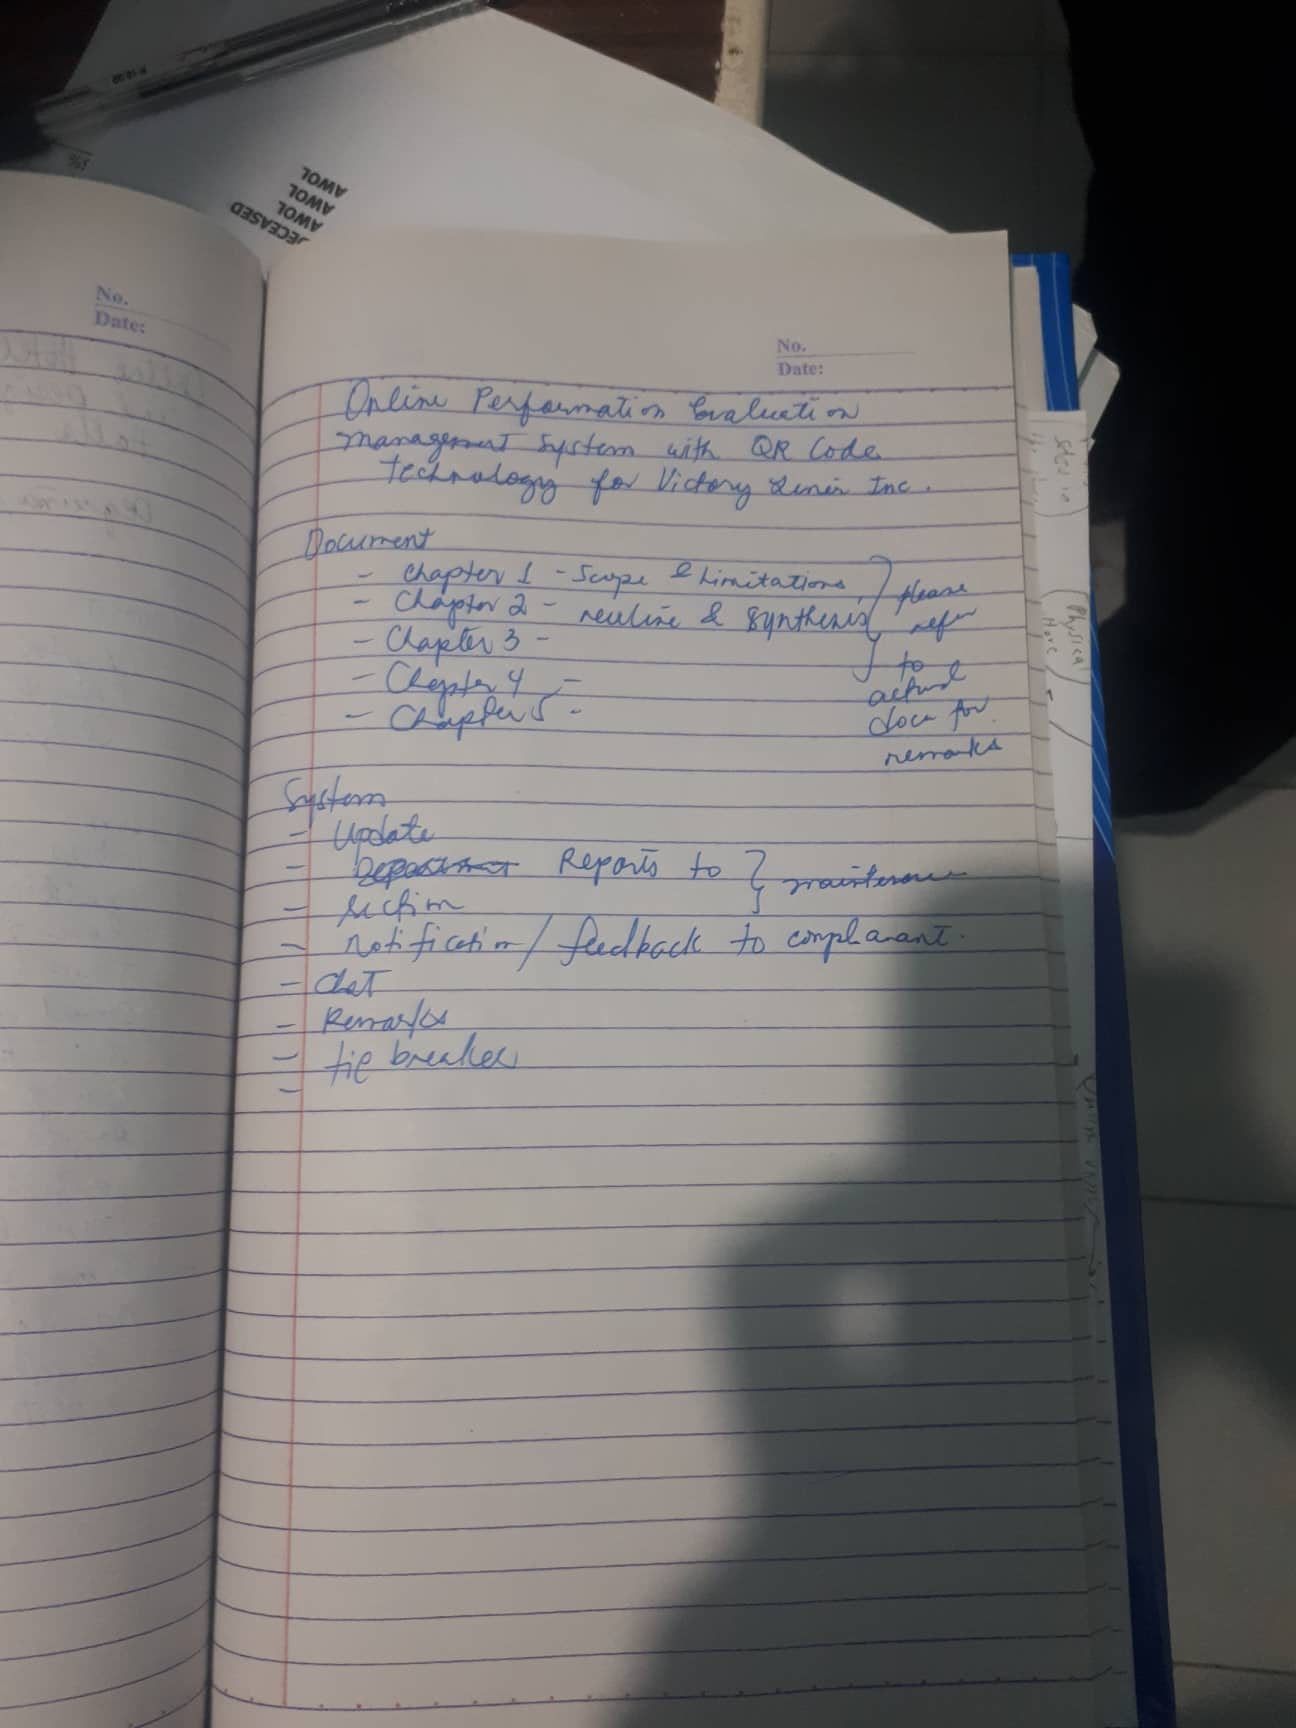 AWOL
AWOL
AWOL
DECEASED
No.
Date:
No.
Date:
Online Performation Evaluation
Management System with QR Code
technology for Victory Liner Inc.
Document
- Chapter 1 - Scope & Limitations
- Chapter 2 - & Synthesis
- Chapter 3 -
- Chapter 4 -
- Chapter 5 -
} please
refer
to
actual
docu for
remarks
System
- Update
- Reports to } maintenance
- Section
- notification / feedback to complanant.
- Chat
- Remarks
- tie breaker
-
Physical